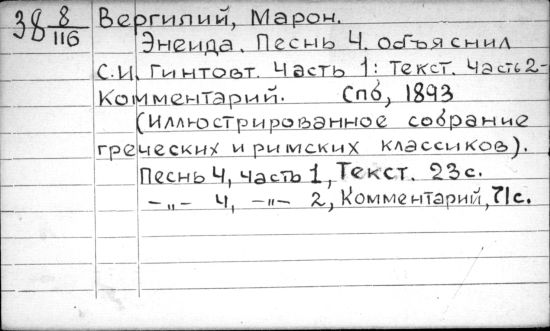 38 8/116 Вергилий, Марон.
Энеида. Песнь 4. объяснил
С.И. Гинтовт. Часть 1: Текст. Часть 2-
Комментарий. Спб, 1893
(Иллюстрированное собрание
греческих и римских классиков).
Песнь 4, часть 1, Текст. 23 с.
-„- 4, -„- 2, Комментарий, 71с.